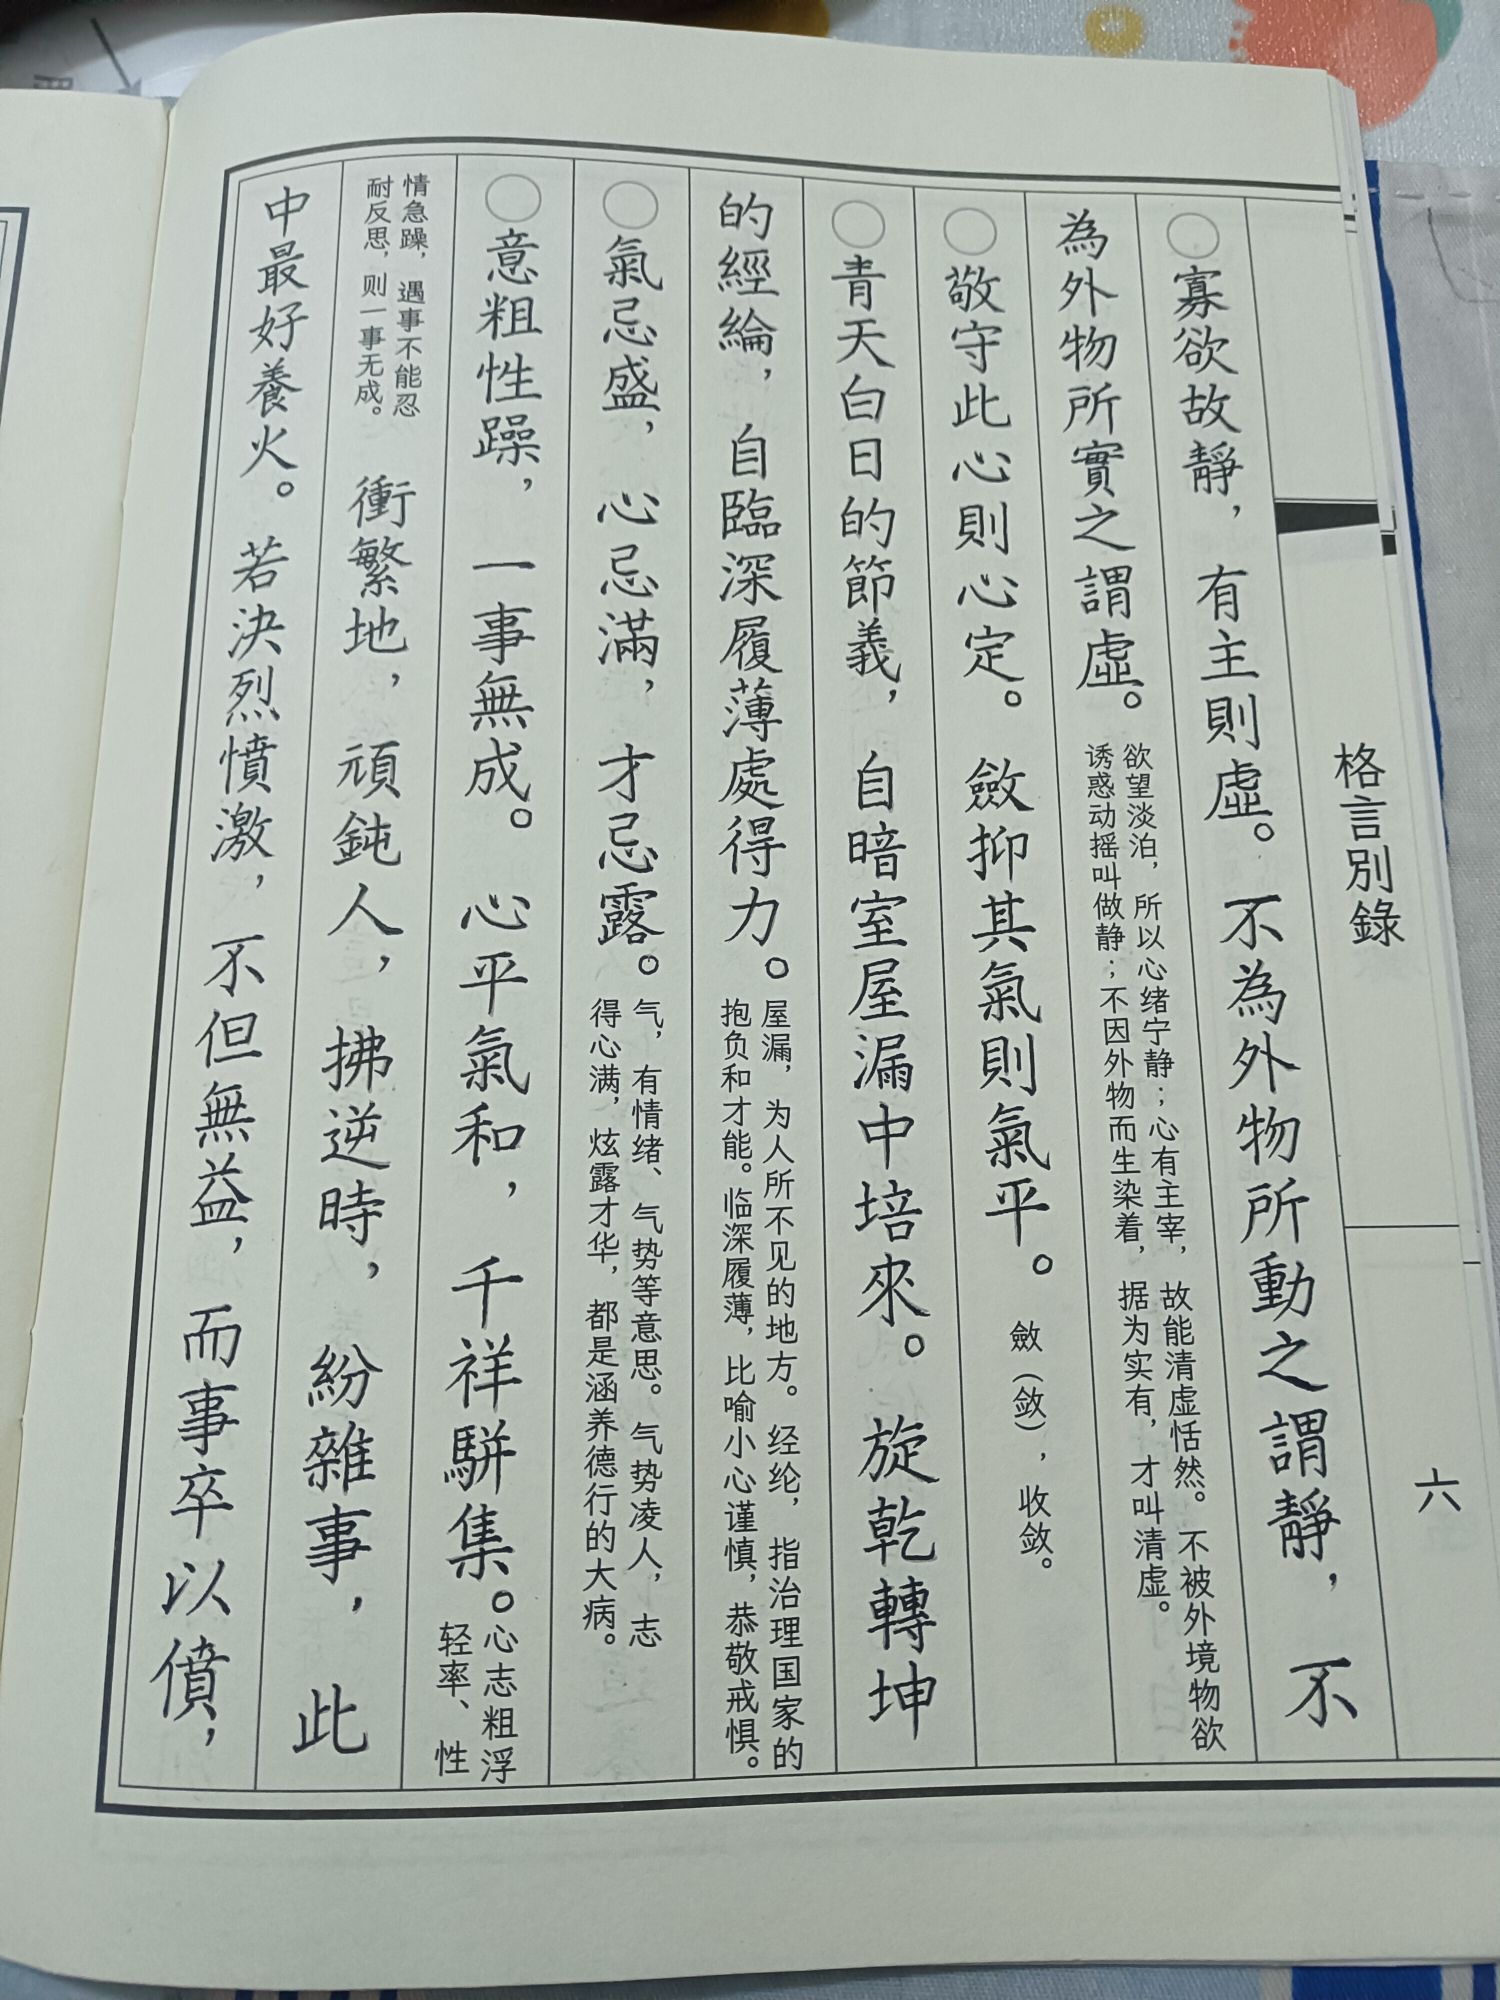 格言別錄
六
○寡欲故靜，有主則虛。不為外物所動之謂靜，不
為外物所實之謂虛。
欲望淡泊，所以心绪宁静；心有主宰，故能清虚恬然。不被外境物欲
诱惑动摇叫做静；不因外物而生染着，据为实有，才叫清虚。
○敬守此心則心定。斂抑其氣則氣平。斂（敛），收敛。
○青天白日的節義，自暗室屋漏中培來。旋乾轉坤
的經綸，自臨深履薄處得力。
屋漏，为人所不见的地方。经纶，指治理国家的
抱负和才能。临深履薄，比喻小心谨慎，恭敬戒惧。
○氣忌盛，心忌滿，才忌露。
气，有情绪、气势等意思。气势凌人，志
得心满，炫露才华，都是涵养德行的大病。
○意粗性躁，一事無成。心平氣和，千祥駢集。
心志粗浮
轻率、性
情急躁，遇事不能忍
耐反思，则一事无成。
衝繁地，頑鈍人，拂逆時，紛雜事，此
中最好養火。若決烈憤激，不但無益，而事卒以僨，